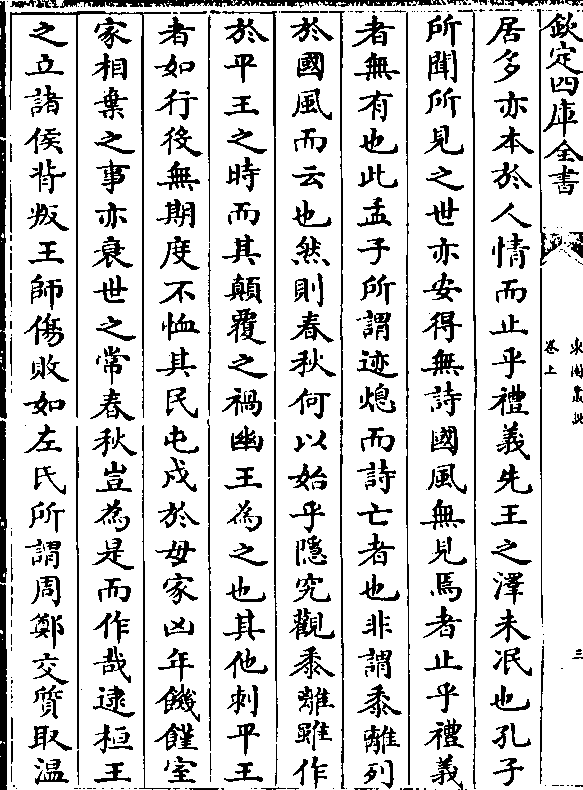 欽定四庫全書
卷上
三
居多亦本於人情而止乎禮義先王之澤未冺也孔子
所聞所見之世亦安得無詩國風無見焉者止乎禮義
者無有也此孟子所謂迹熄而詩亡者也非謂黍離列
於國風而云也然則春秋何以始乎隱究觀黍離雖作
於平王之時而其顛覆之禍幽王為之也其他刺平王
者如行役無期度不恤其民屯戍於母家凶年饑饉室
家相棄之事亦衰世之常春秋豈為是而作哉逮桓王
之立諸侯背叛王師傷敗如左氏所謂周鄭交質取溫